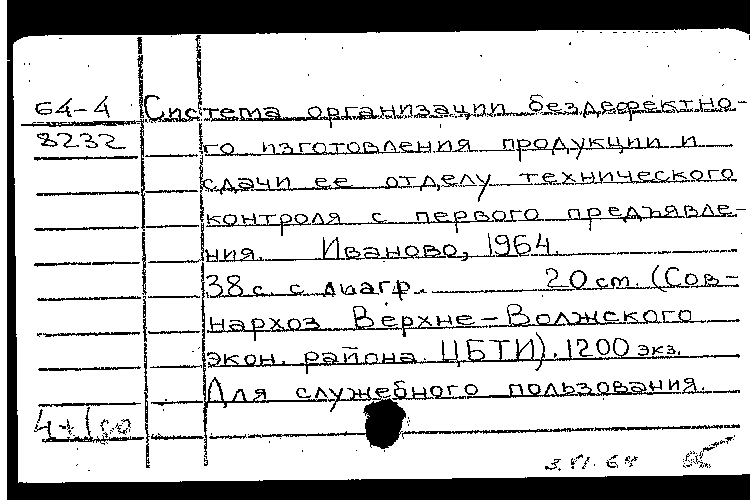 64-4 Система организации бездефектно-
8232 го изготовления продукции и
сдачи ее отделу технического
контроля с первого предъявле-
ния. Иваново, 1964.
38 с. с диагр. 20 cm. (Сов-
нархоз Верхне-Волжского
экон. района. ЦБТИ). 1200 экз.
Для служебного пользования.